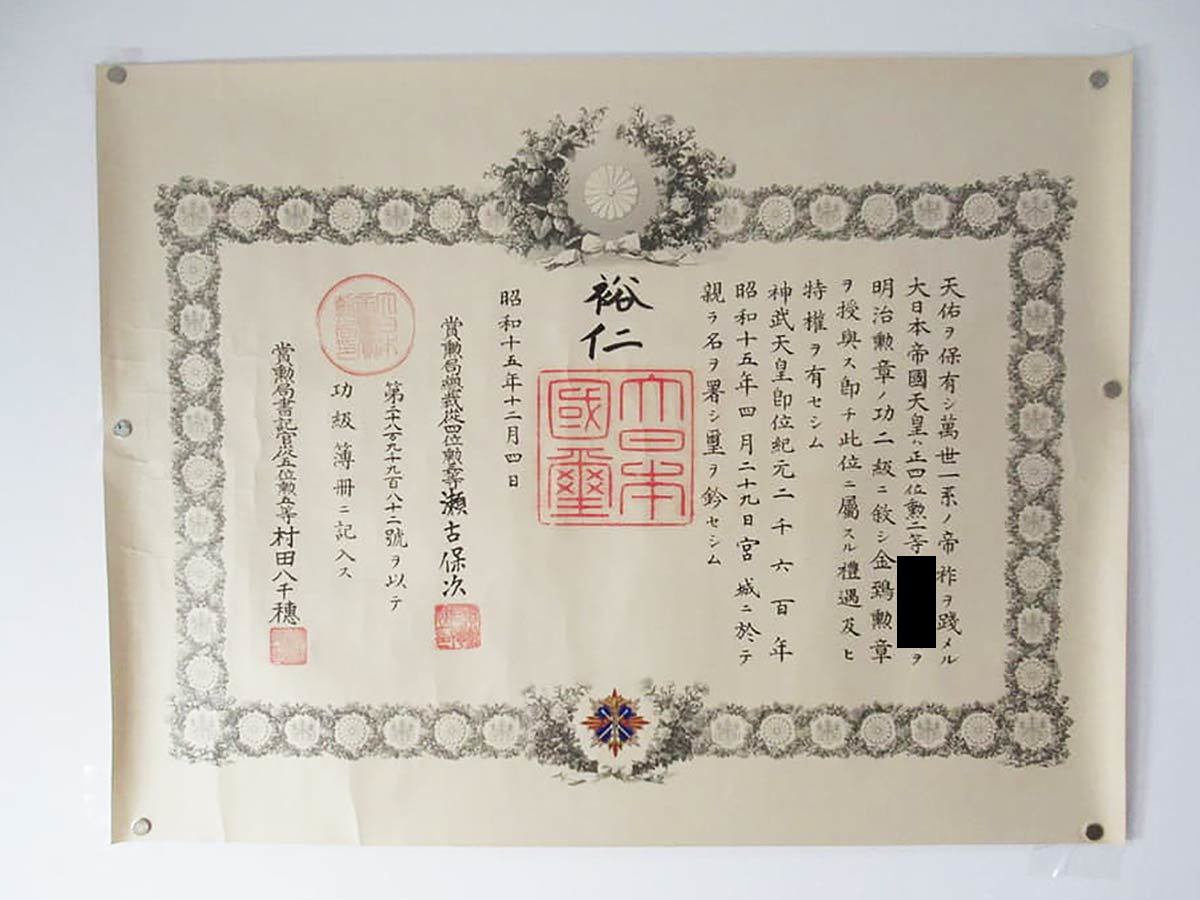 天佑ヲ保有シ萬世一系ノ帝祚ヲ踐メル
大日本帝國天皇ハ正四位勲二等
ヲ
明治勲章ノ功二級ニ敍シ金鵄勲章
ヲ授與ス即チ此位ニ屬スル禮遇及ヒ
特權ヲ有セシム
神武天皇即位紀元二千六百年
昭和十五年四月二十九日宮城ニ於テ
親ラ名ヲ署シ璽ヲ鈐セシム
裕仁
大日本國璽
昭和十五年十二月四日
賞勲局總裁從四位勲二等瀬古保次
第二十八万九千九百八十二號ヲ以テ
功級簿冊ニ記入ス
賞勲局書記官從五位勲五等村田八千穂